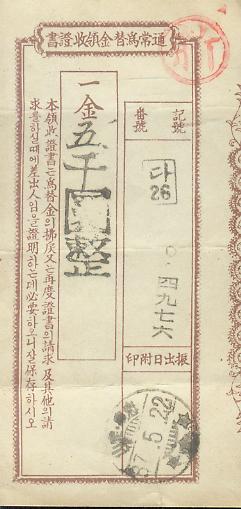 通常爲替金領收證書
記號
番號
다
26
〇四九七六
振出日附印
87.5.22
一金五千圜整
本領收證書는爲替金의拂戾又는再度證書의請求及其他의請
求를하실때에差出人임을證明하는데必要하오니잘保存하시오